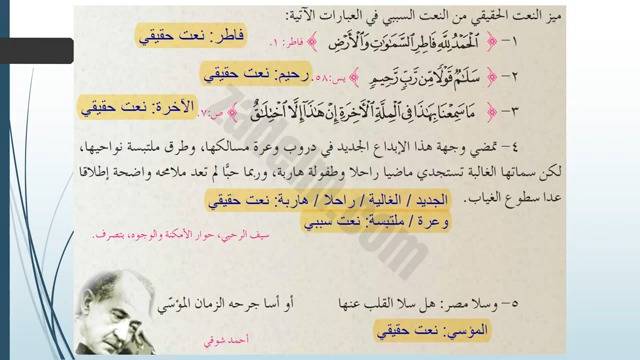 ميز النعت الحقيقي من النعت السببي في العبارات الآتية:
١– ﴿ ٱلۡحَمۡدُ لِلَّهِ فَاطِرِ ٱلسَّمَٰوَٰتِ وَٱلۡأَرۡضِ ﴾ فاطر: ١. فاطر: نعت حقيقي
٢– ﴿ سَلَٰمٞ قَوۡلٗا مِّن رَّبّٖ رَّحِيمٖ ﴾ يس:٥٨. رحيم: نعت حقيقي
٣– ﴿ مَا سَمِعۡنَا بِهَٰذَا فِي ٱلۡمِلَّةِ ٱلۡأٓخِرَةِ إِنۡ هَٰذَآ إِلَّا ٱخۡتِلَٰقٌ ﴾ ص:٧. الآخرة: نعت حقيقي
٤– تمضي وجهة هذا الإبداع الجديد في دروب وعرة مسالكها، وطرق ملتبسة نواحيها،
لكن سماتها الغالبة تستجدي ماضيا راحلا وطفولة هاربة، وربما حبًّا لم تعد ملامحه واضحة إطلاقا
عدا سطوع الغياب.
الجديد / الغالية / راحلا / هاربة: نعت حقيقي
وعرة / ملتبسة: نعت سببي
سيف الرحبي، حوار الأمكنة والوجوه، بتصرف.
٥– وسلا مصر: هل سلا القلب عنها أو أسا جرحه الزمان المؤسّي
المؤسي: نعت حقيقي
أحمد شوقي